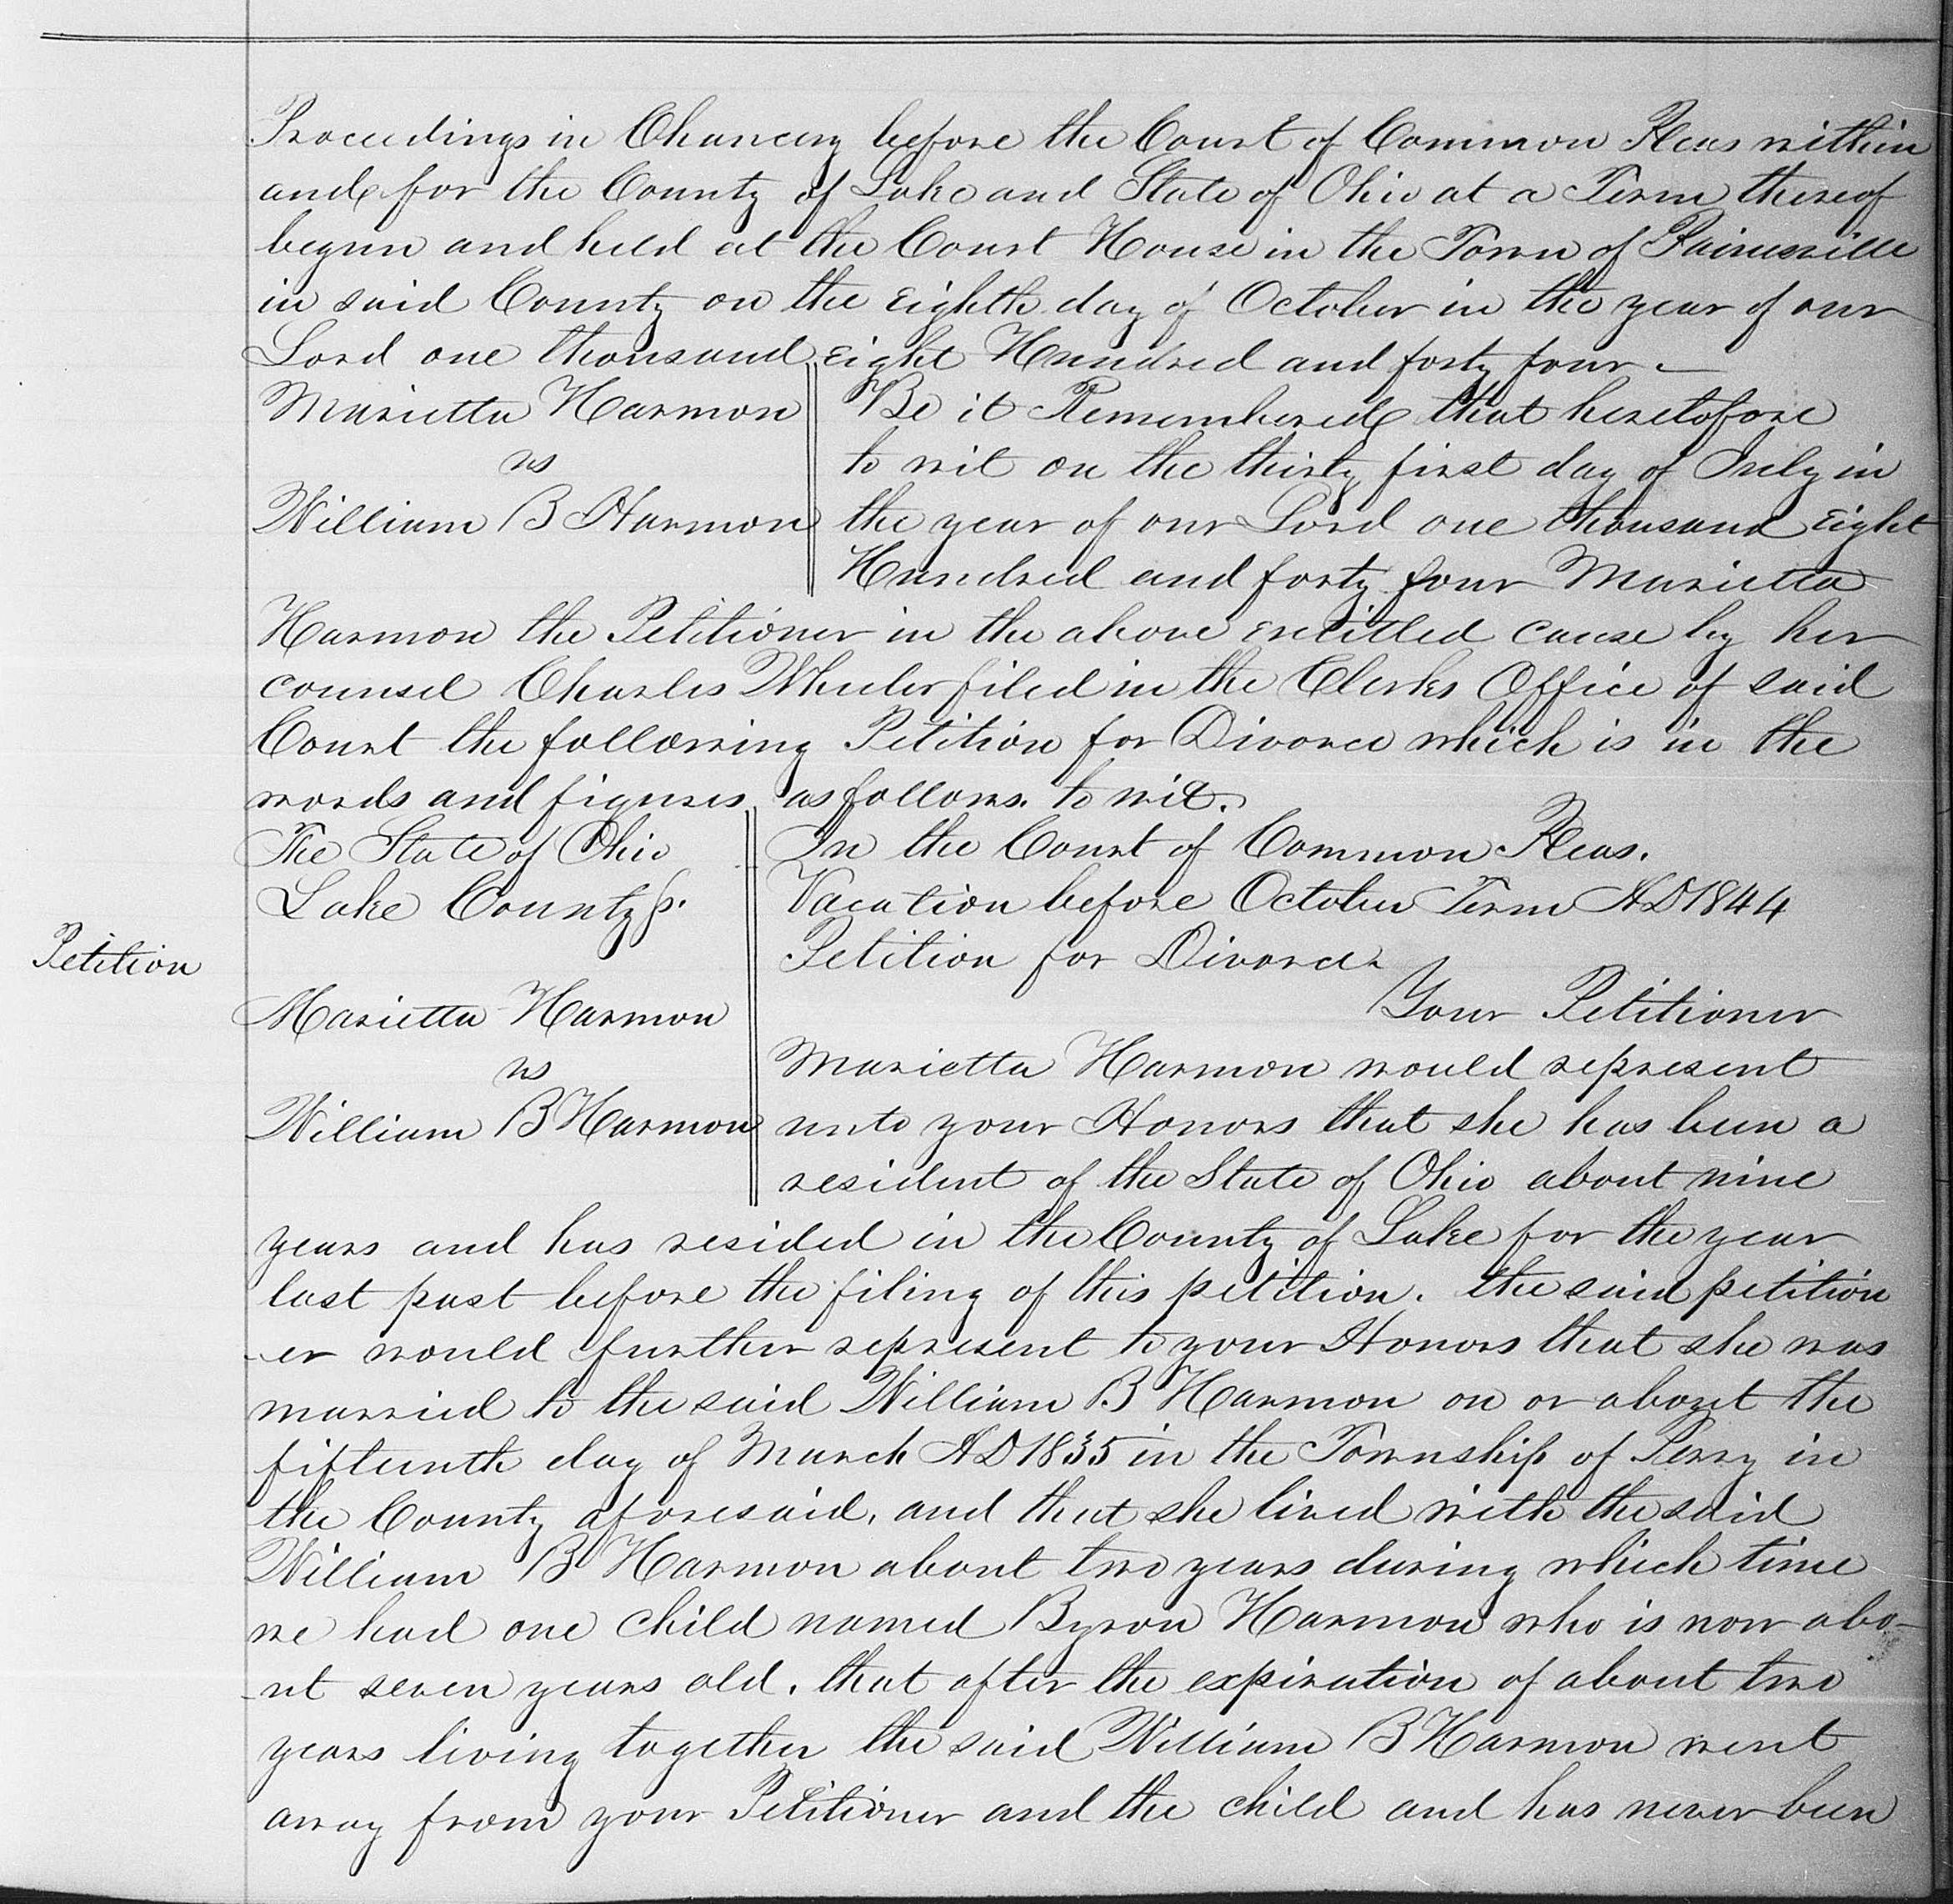 Proceedings in Chancery before the Court of Common Pleas within
and for the County of Lake and State of Ohio at a Term thereof
begun and held at the Court House in the Town of Painesville
in said County on the eighth day of October in the year of our
Lord one thousand eight Hundred and forty four —
Marietta Harmon
vs
William B Harmon
Be it Remembered that heretofore
to wit on the thirty first day of July in
the year of our Lord one thousand eight
Hundred and forty four Marietta
Harmon the Petitioner in the above entitled cause by her
counsel Charles Wheeler filed in the Clerks Office of said
Court the following Petition for Divorce which is in the
words and figures as follows. to wit.
The State of Ohio
Lake County ss.
Petition
Marietta Harmon
vs
William B Harmon
In the Court of Common Pleas.
Vacation before October Term AD 1844
Petition for Divorce
Your Petitioner
Marietta Harmon would represent
unto your Honors that she has been a
resident of the State of Ohio about nine
years and has resided in the County of Lake for the year
last past before the filing of this petition. the said petition
-er would further represent to your Honors that she was
married to the said William B Harmon on or about the
fifteenth day of March AD 1835 in the Township of Perry in
the County aforesaid, and that she lived with the said
William B Harmon about two years during which time
we had one child named Byron Harmon who is now abo-
-ut seven years old. that after the expiration of about two
years living together the said William B Harmon went
away from your Petitioner and the child and has never been